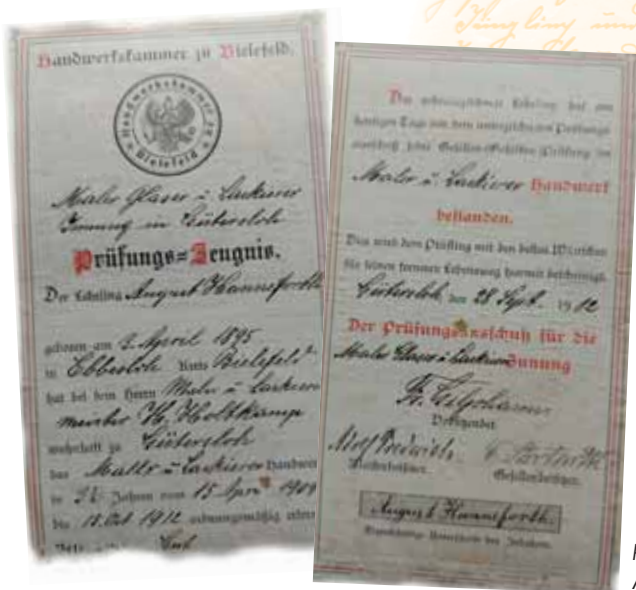 Jüngling und
Handwerkskammer zu Bielefeld.
Handwerkskammer zu
Bielefeld
Maler Glaser u. Lackierer
Innung in Gütersloh
Prüfungs=Zeugnis.
Der Lehrling August Hannsforth
geboren am 2. April 1895
in Ebbesloh Kreis Bielefeld
hat bei dem Herrn Maler u. Lackierer
meister H. Holtkamp
wohnhaft zu Gütersloh
das Maler u. Lackierer Handwerk
in 3½ Jahren vom 15 April 1909
bis 15. Okt 1912 ordnungsmäßig
Gut
Der unterzeichnete Lehrling hat am
heutigen Tage vor dem unterzeichneten Prüfungs
ausschuß seine Gesellen-Prüfung im
Maler u. Lackierer Handwerk
bestanden.
Dies wird dem Prüfling mit den besten Wünschen
für seinen ferneren Lebensweg hiermit bescheinigt.
Gütersloh den 28 Sept. 1912
Der Prüfungsausschuß für die
Maler Glaser u. Lackierer Innung
Vorsitzender
Meisterbeisitzer. Gesellenbeisitzer.
August Hannsforth.
Eigenhändige Unterschrift des Inhabers.